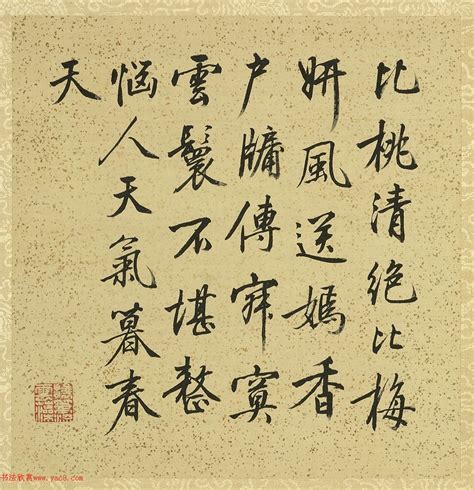 比桃清絶比梅
妍風送嫣香
戶牖傳寂寞
雲鬟不堪整
惱人天氣暮春
天
书法欣赏www.yac8.com